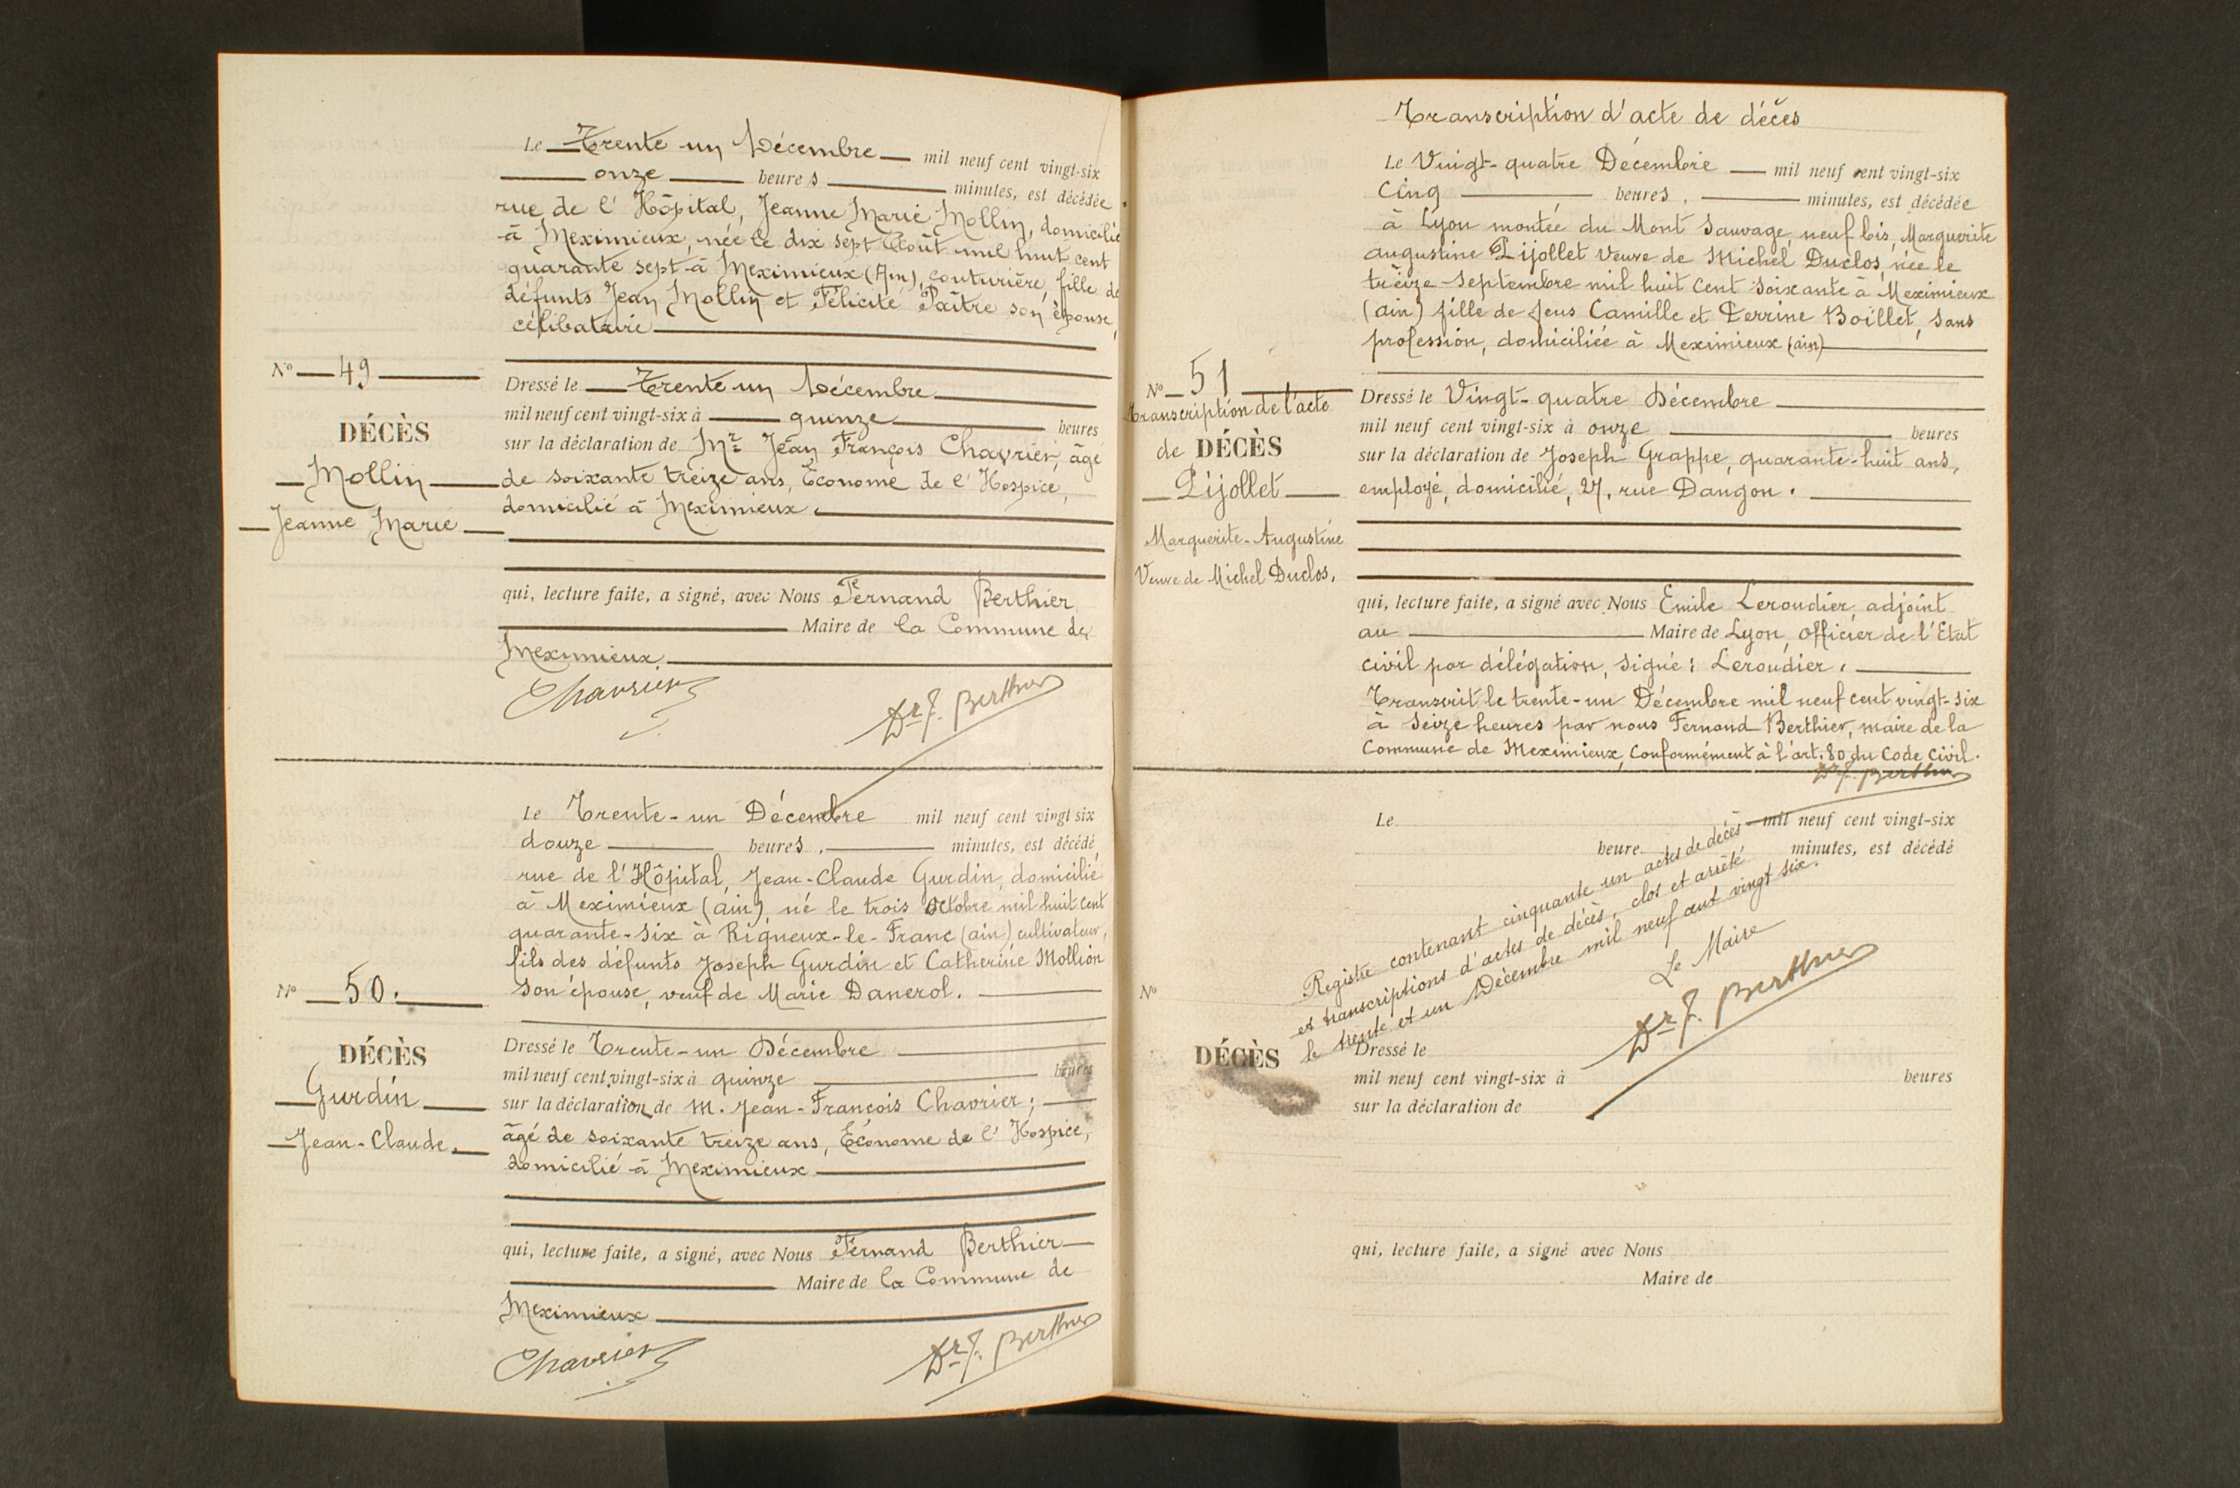 Le Trente-un Décembre mil neuf cent vingt-six
onze heures minutes, est décédée
rue de l'Hôpital, Jeanne Marie Mollin, domicilié
à Meximieux, née le dix sept Août mil huit cent
quarante sept à Meximieux (Ain), couturière, fille de
défunts Jean Mollin et Félicité Paître son épouse,
célibataire
No 49
DÉCÈS
Mollin
Jeanne Marie
Dressé le Trente un Décembre
mil neuf cent vingt-six à quinze heures
sur la déclaration de Mr Jean François Chavrier, âgé
de soixante treize ans, Économe de l'Hospice,
domicilié à Meximieux.
qui, lecture faite, a signé, avec Nous Fernand Berthier
Maire de la Commune de
Meximieux.
Chavrier
Dr F. Berthier
Le Trente-un Décembre mil neuf cent vingt six
douze heures, minutes, est décédé
rue de l'Hôpital, Jean-Claude Gurdin, domicilié
à Meximieux (ain), né le trois Octobre mil huit cent
quarante-six à Rigneux-le-Franc (ain) cultivateur,
fils des défunts Joseph Gurdin et Catherine Mollion
son épouse, veuf de Marie Danerol.
No 50.
DÉCÈS
Gurdin
Jean-Claude.
Dressé le Trente-un Décembre
mil neuf cent vingt-six à quinze heures
sur la déclaration de M. Jean-François Chavrier;
âgé de soixante treize ans, Économe de l'Hospice,
domicilié à Meximieux
qui, lecture faite, a signé, avec Nous Fernand Berthier
Maire de la Commune de
Meximieux
Chavrier
Dr F. Berthier
Transcription d'acte de décès
Le Vingt-quatre Décembre mil neuf cent vingt-six
Cinq heures, minutes, est décédée
à Lyon montée du Mont Sauvage, neuf bis, Marguerite
augustine Pijollet Veuve de Michel Duclos, née le
treize Septembre mil huit cent soixante à Meximieux
(ain) fille de feus Camille et Perrine Boillet, sans
profession, domiciliée à Meximieux (ain)
No 51
Transcription de l'acte
de DÉCÈS
Pijollet
Marguerite-Augustine
Veuve de Michel Duclos.
Dressé le Vingt-quatre Décembre
mil neuf cent vingt-six à onze heures
sur la déclaration de Joseph Grappe, quarante-huit ans,
employé, domicilié, 27, rue Dangon.
qui, lecture faite, a signé avec Nous Emile Leroudier, adjoint
au Maire de Lyon, officier de l'Etat
civil par délégation, signé: Leroudier.
Transcrit le trente-un Décembre mil neuf cent vingt-six
à Seize heures par nous Fernand Berthier, maire de la
Commune de Meximieux, Conformément à l'art. 80 du Code Civil.
Dr F. Berthier
Le mil neuf cent vingt-six
heure minutes, est décédé
Registre contenant cinquante un actes de décès
et transcriptions d'actes de décès, clos et arrêté
le trente et un Décembre mil neuf cent vingt six.
Le Maire
Dr F. Berthier
No
DÉCÈS
Dressé le
mil neuf cent vingt-six à heures
sur la déclaration de
qui, lecture faite, a signé avec Nous
Maire de